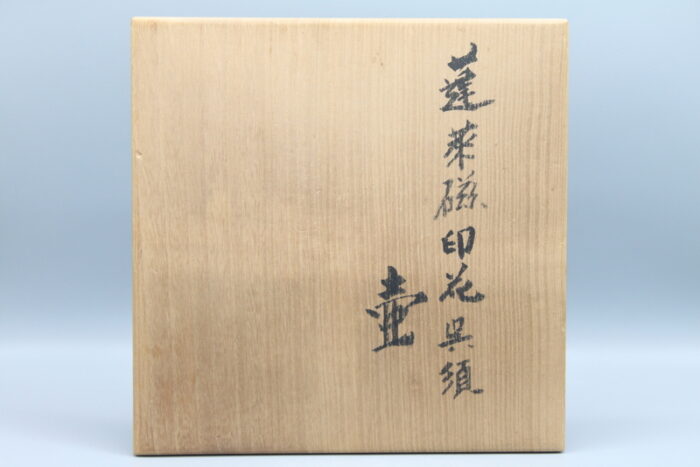 蓬莱磁印花呉須
壷